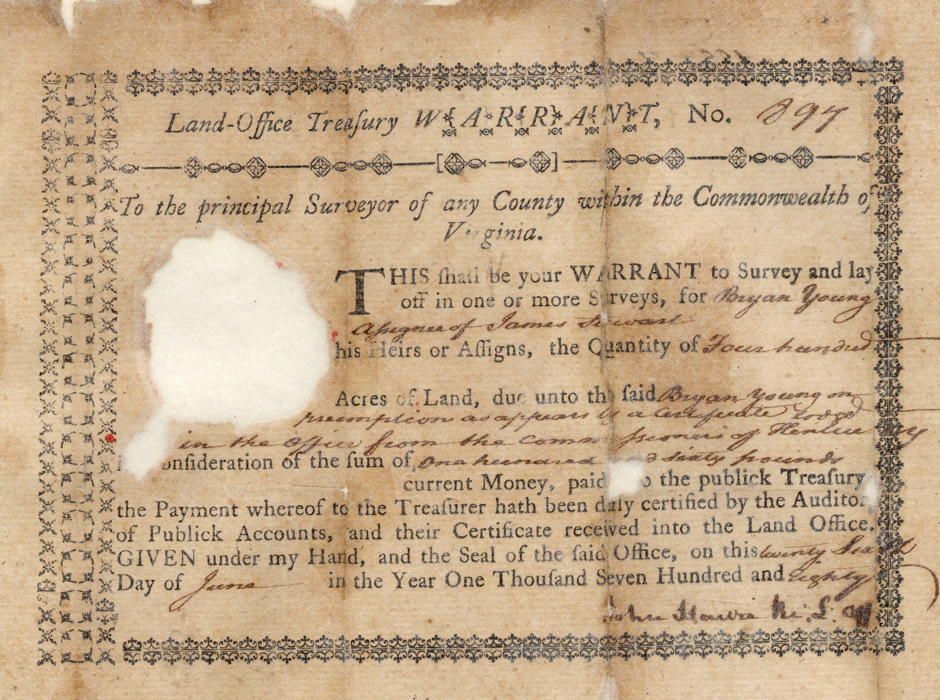 Land-Office Treasury WARRANT, No. 897
To the principal Surveyor of any County within the Commonwealth of
Virginia.
THIS ſhall be your WARRANT to Survey and lay
off in one or more Surveys, for Bryan Young
aſsignee of James Stewart
his Heirs or Aſſigns, the Quantity of Four hundred
Acres of Land, due unto the ſaid Bryan Young on
preemption as appears by a Certificate Lodged
in the office from the comm ſsioners of
onſideration of the ſum of one hundred d sixty pounds
current Money, paid o the publick Treasury
the Payment whereof to the Treaſurer hath been duly certified by the Auditor,
of Publick Accounts, and their Certificate received into the Land Office.
GIVEN under my Hand, and the Seal of the ſaid Office, on this twenty
Day of June in the Year One Thouſand Seven Hundred and eighty
John